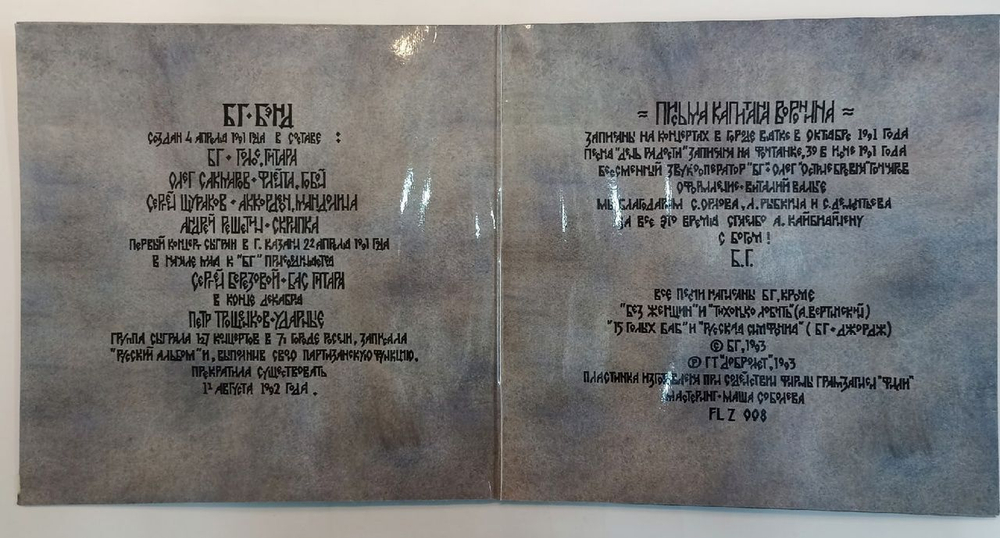 БГ•БЭНД
СОЗДАН 4 АПРЕЛЯ 1991 ГОДА В СОСТАВЕ :
БГ • ГОЛОС, ГИТАРА
ОЛЕГ САКМАРОВ • ФЛЕЙТА, ГОБОЙ
СЕРГЕЙ ЩУРАКОВ • АККОРДЕОН, МАНДОЛИНА
АНДРЕЙ РЕШЕТИН • СКРИПКА
ПЕРВЫЙ КОНЦЕРТ СЫГРАН В Г. КАЗАНИ 22 АПРЕЛЯ 1991 ГОДА
В НАЧАЛЕ МАЯ К "БГ" ПРИСОЕДИНЯЕТСЯ
СЕРГЕЙ БЕРЕЗОВОЙ • БАС ГИТАРА
В КОНЦЕ ДЕКАБРЯ
ПЕТР ТРОЩЕНКОВ • УДАРНЫЕ
ГРУППА СЫГРАЛА 167 КОНЦЕРТОВ В 71 ГОРОДЕ РОССИИ, ЗАПИСАЛА
"РУССКИЙ АЛЬБОМ" И, ВЫПОЛНИВ СВОЮ ПАРТИЗАНСКУЮ ФУНКЦИЮ,
ПРЕКРАТИЛА СУЩЕСТВОВАТЬ
АВГУСТА 1992 ГОДА .
≈ ПИСЬМА КАПИТАНА ВОРОНИНА ≈
ЗАПИСАНЫ НА КОНЦЕРТАХ В ГОРОДЕ ВЯТКЕ В ОКТЯБРЕ 1991 ГОДА
ПЕСНЯ "ДЕНЬ РАДОСТИ" ЗАПИСАНА НА ФОНТАНКЕ, 39 В ИЮНЕ 1991 ГОДА
БЕССМЕННЫЙ ЗВУКООПЕРАТОР "БГ" • ОЛЕГ "ОСТРЫЕ БРЕВНА" ГОНЧАРОВ
ОФОРМЛЕНИЕ • ВИТАЛИЙ ВАЛЬГЕ
МЫ БЛАГОДАРИМ С. ОРЛОВА, Л. РЫБКИНА И С. ДЕМЕНТЬЕВА
ЗА ВСЕ ЭТО ВРЕМЯ СПАСИБО А. КАЙБИЯЙНЕНУ
С БОГОМ !
Б.Г.
ВСЕ ПЕСНИ НАПИСАНЫ БГ, КРОМЕ
"БЕЗ ЖЕНЩИН" И "ТИХОНЬКО ЛЮБИТЬ" (А. ВЕРТИНСКИЙ)
"15 ГОЛЫХ БАБ" И "РУССКАЯ СИМФОНИЯ" ( БГ • ДЖОРДЖ)
© БГ, 1993
Ⓟ ГТ "ДОБРОЛЕТ", 1993
ПЛАСТИНКА ИЗГОТОВЛЕНА ПРИ СОДЕЙСТВИИ ФИРМЫ ГРАМЗАПИСИ "ФИЛИ"
МАСТЕРИНГ • МАША СОБОЛЕВА
FLZ 008